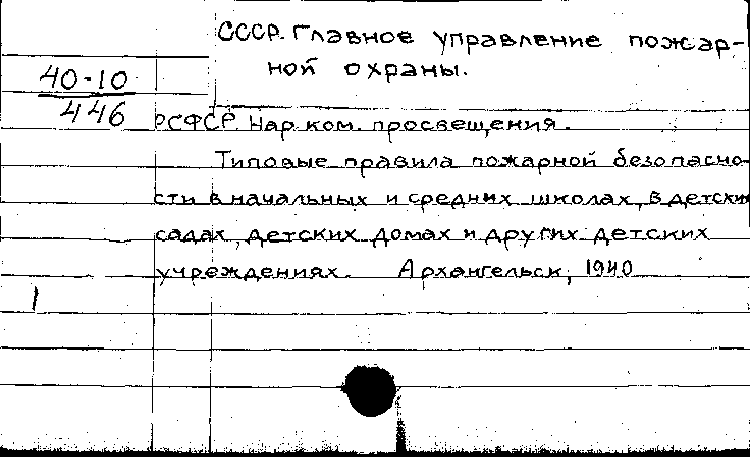 СССР. Главное управление пожар-
ной охраны.
40-10
446
РСФСР. Нар. ком. просвещения.
Типовые правила пожарной безопасно-
сти в начальных и средних школах, в детских
садах, детских домах и других детских
учреждениях. Архангельск, 1940
1